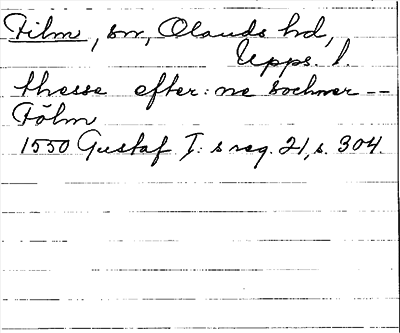 Film, sn, Olands hd,
Upps. l.
thesse efter: ne sochner --
Fölm
1550 Gustaf I: s reg. 21, s. 304.